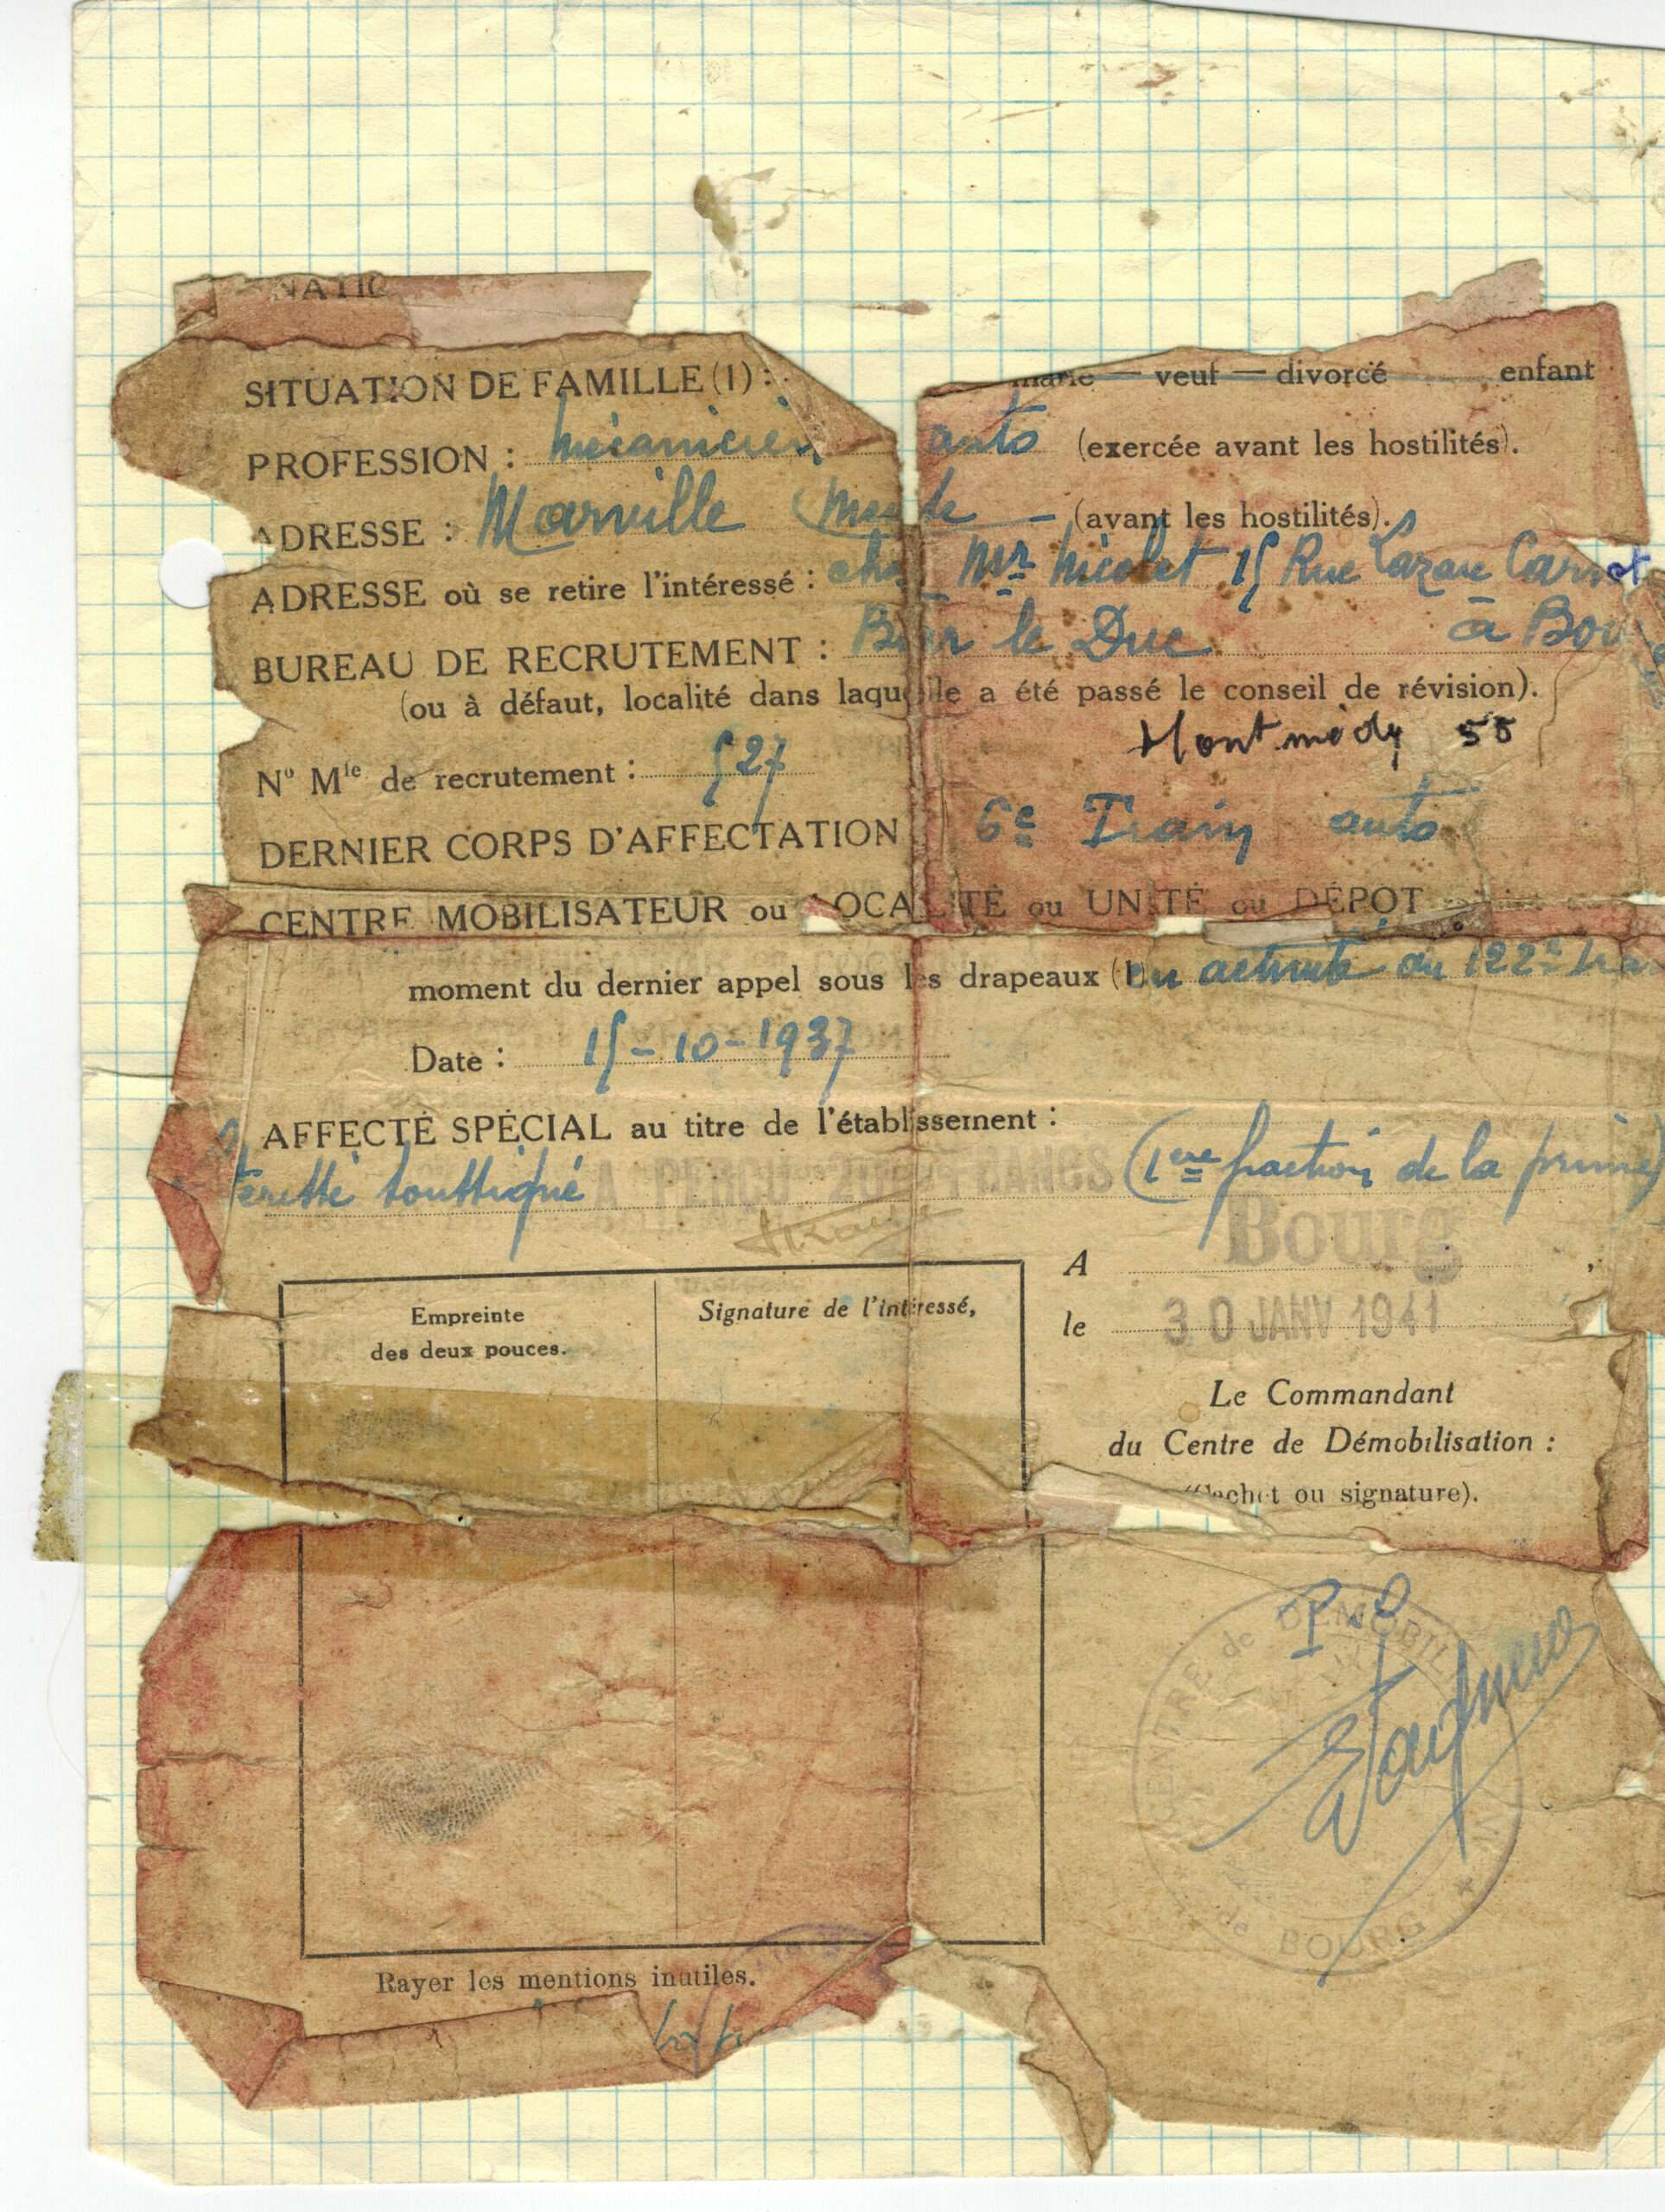 NATIO
SITUATION DE FAMILLE (1) : marié — veuf — divorcé enfant
PROFESSION : mécanicien auto (exercée avant les hostilités).
ADRESSE : Marville (Meuse) — (avant les hostilités).
ADRESSE où se retire l'intéressé : chez Mr Nicolet 15 Rue Lazare Carnot
BUREAU DE RECRUTEMENT : Bar le Duc à Bou
(ou à défaut, localité dans laquelle a été passé le conseil de révision).
Montmédy 55
No Mle de recrutement : 527
DERNIER CORPS D'AFFECTATION 6e Train auto
CENTRE MOBILISATEUR ou LOCALITÉ ou UNITÉ ou DÉPOT
moment du dernier appel sous les drapeaux (1) En activité au 122e
Date : 15-10-1937
AFFECTÉ SPÉCIAL au titre de l'établissement :
A PERÇU 200 FRANCS (1ère fraction de la prime)
A Bourg ,
le 30 JANV 1941
Empreinte
des deux pouces.
Signature de l'intéressé,
Le Commandant
du Centre de Démobilisation :
(Cachet ou signature).
CENTRE de DEMOBIL
de BOURG
Rayer les mentions inutiles.